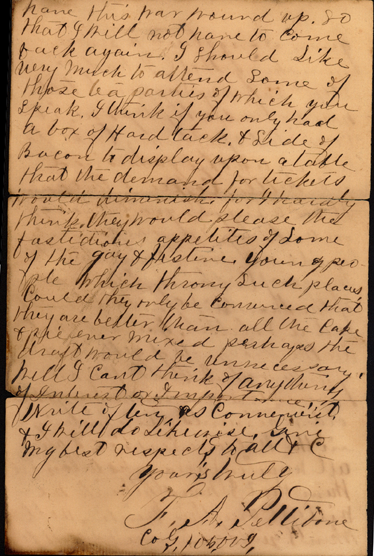 have this war wound up. So
that I will not have to come
back again. I should like
very much to attend Some of
those tea parties of which you
speak. I think if you only had
a box of Hard tack. & Side of
Bacon to display upon a table
that the demand for tickets
would diminish for I hardly
think they would please the
fastidious appetites of Some
of the gay & festive young peo-
ple which throng Such places
Could they only be convinced that
they are better than all the Cake
& pie ever mixed perhaps the
draft would be unnecessary.
Well I Cant think of anything
of Interest or Importance
Write if
& I will do likewise. give
my best respects to all &C
Yours truly
F. A.
Co